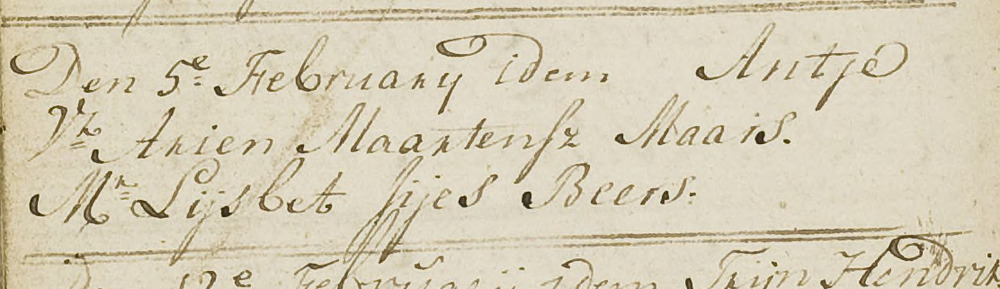 Den 5e February idem Antje
Vr Arien Maartensz Maars.
Mr Lijsbet sijes Beers.
12e February idem Trijn Hendrik